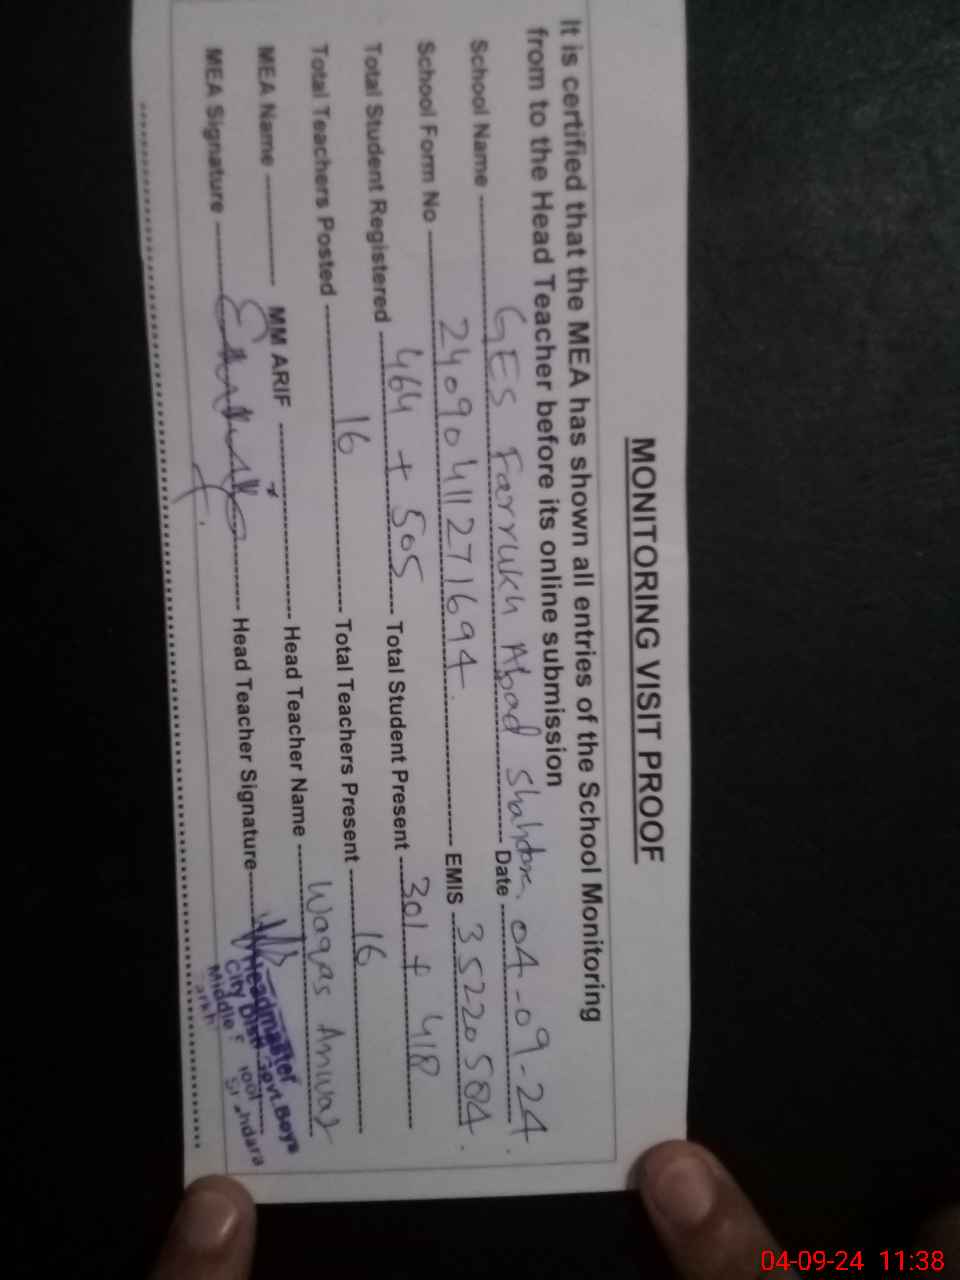 MONITORING VISIT PROOF
It is certified that the MEA has shown all entries of the School Monitoring
from to the Head Teacher before its online submission
School Name GES Farrukh Abad Shahdra. Date 04-09-24.
School Form No 2409041127 1694. EMIS 35220584.
Total Student Registered 464 + 505 Total Student Present 301 + 418
Total Teachers Posted 16 Total Teachers Present 16
MEA Name MM ARIF Head Teacher Name Waqas Anwar
MEA Signature Head Teacher Signature
Headmaster
City Distt Govt. Boys
Middle
04-09-24 11:38